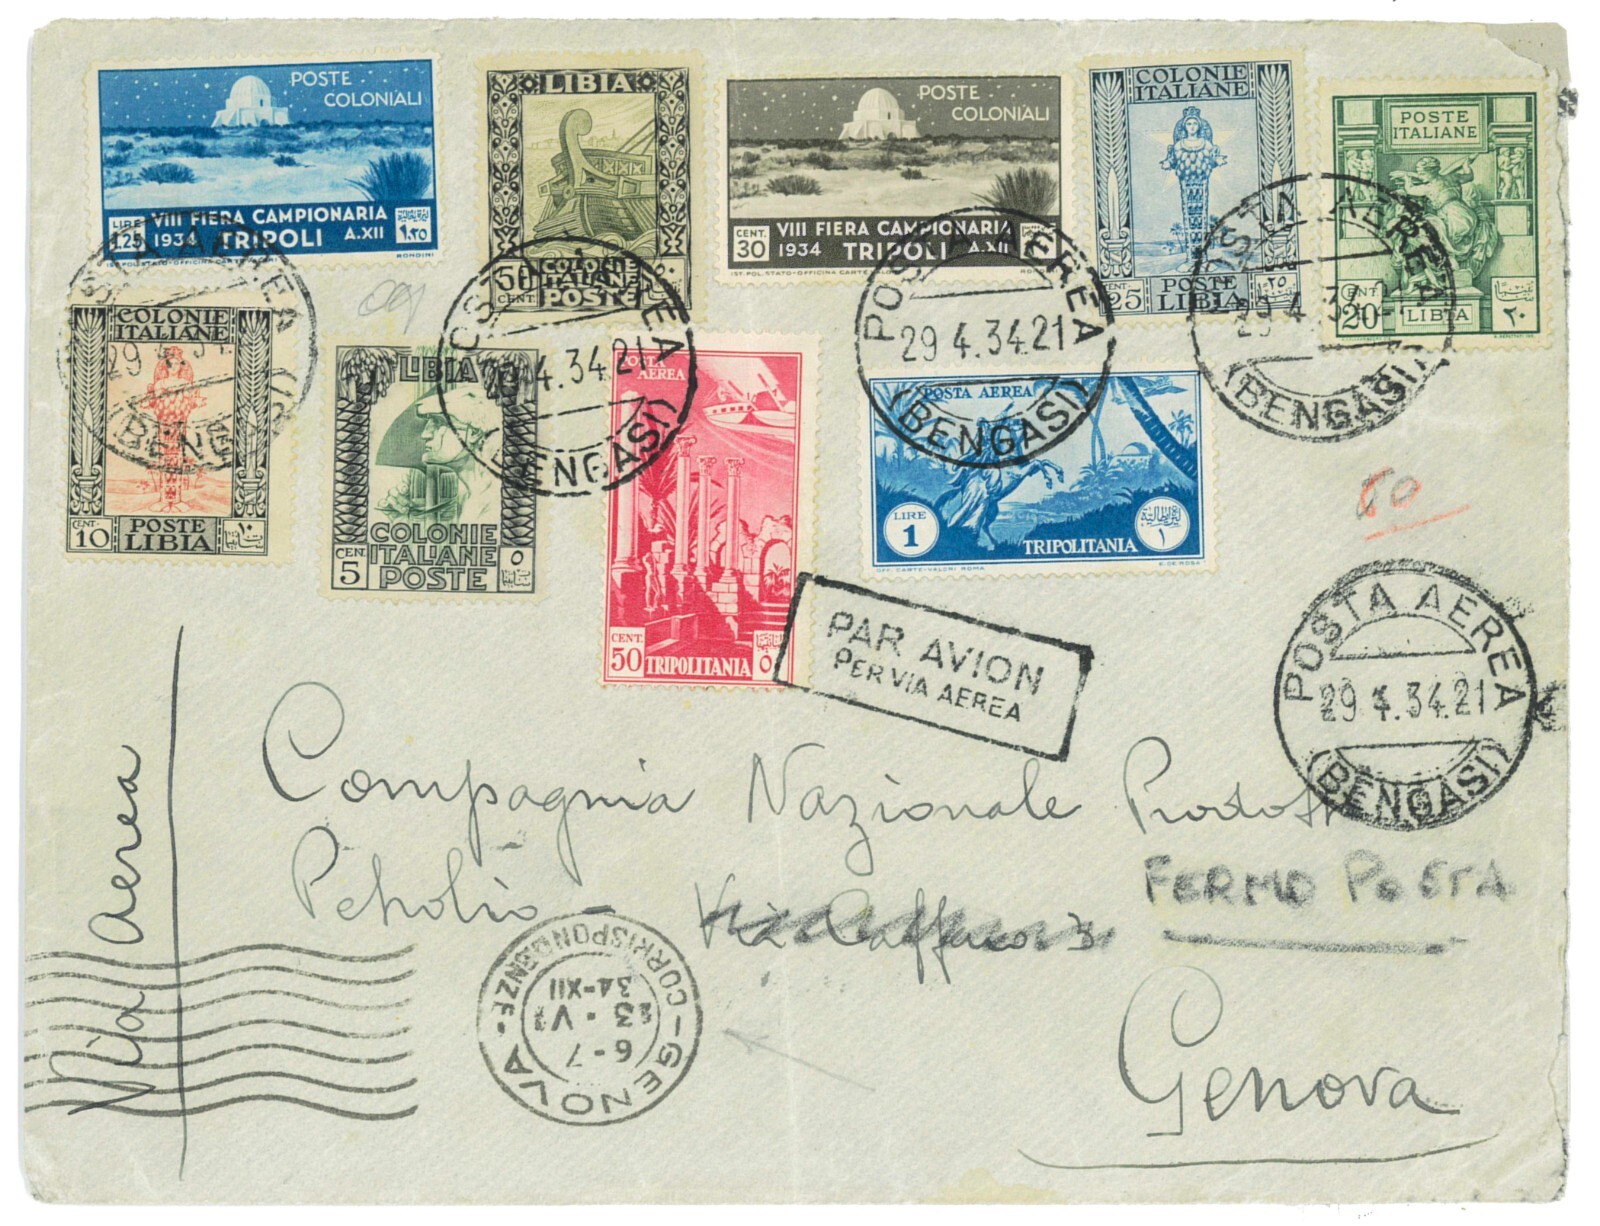 POSTE
COLONIALI
LIRE 1.25 VIII FIERA CAMPIONARIA
1934 TRIPOLI A.XII
IST. POL. STATO-OFFICINA CARTE VALORI
RONDINI
LIBIA
50 CENT.
COLONIE
ITALIANE
POSTE
POSTE
COLONIALI
CENT. 30 VIII FIERA CAMPIONARIA
1934 TRIPOLI A.XII
IST. POL. STATO-OFFICINA CARTE
COLONIE
ITALIANE
25 POSTE
LIBIA ٢٥
POSTE
ITALIANE
CENT. 20 LIBIA ٢٠
COLONIE
ITALIANE
CENT. 10 POSTE
LIBIA ١٠
LIBIA
CEN. 5
COLONIE
ITALIANE
POSTE
٥
POSTA
AEREA
CENT. 50 TRIPOLITANIA
POSTA AEREA
LIRE 1
TRIPOLITANIA
١
OFF. CARTE-VALORI ROMA
POSTA AEREA
29 4.34.21
(BENGASI)
POSTA AEREA
4.34 21
(BENGASI)
POSTA AEREA
29 4.34.21
(BENGASI)
POSTA AEREA
29 4 34
(BENGASI)
POSTA AEREA
29 4.34.21
(BENGASI)
60
PAR AVION
PER VIA AEREA
Via Aerea
Compagnia Nazionale Prodotti
Petrolio - Via Caffaro 3
FERMO POSTA
Genova
GENOVA
CORRISPONDENZE
6-7
3 · VI
34-XII